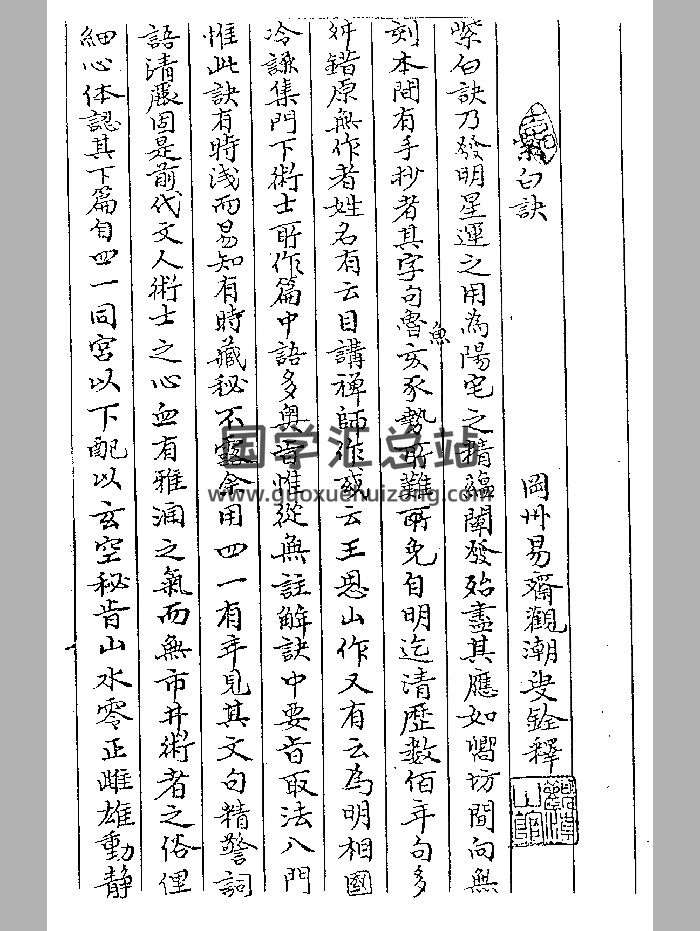 紫白訣
岡州易齋觀潮叟銓釋
紫白訣乃發明星運之用為陽宅之精緼闡發殆盡其應如嚮坊間向無
刻本間有手抄者其字句魯魚亥豕勢所難所免自明迄清歷數佰年句多
舛錯原無作者姓名有云目講禅師作或云王思山作又有云為明相國
冷謙集門下術士所作篇中語多奥旨惟從無註解訣中要旨取法八門
惟此訣有時浅而易知有時藏秘不露余用四一有年見其文句精警詞
語清麗固是前代文人術士之心血有雅涵之氣而無市井術者之俗俚
細心体認其下篇自四一同宮以下配以玄空秘旨山水零正雌雄動静
国学汇总站
www.guoxuehuizong.com